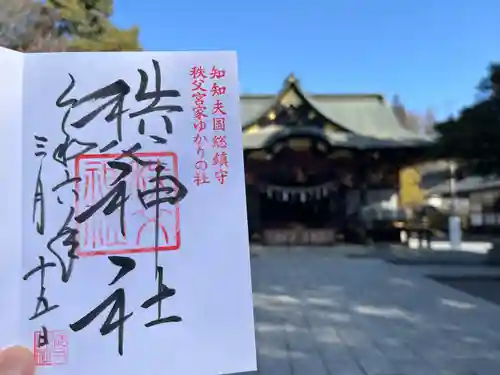 知知夫国総鎮守
秩父宮家ゆかりの社
秩父神社
令和六年
三月
十五日